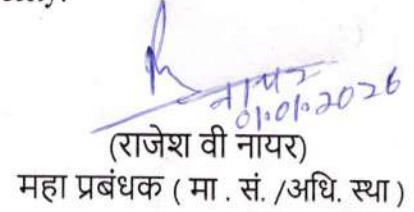 नायर
01.01.2026
(राजेश वी नायर)
महा प्रबंधक ( मा . सं. /अधि. स्था )